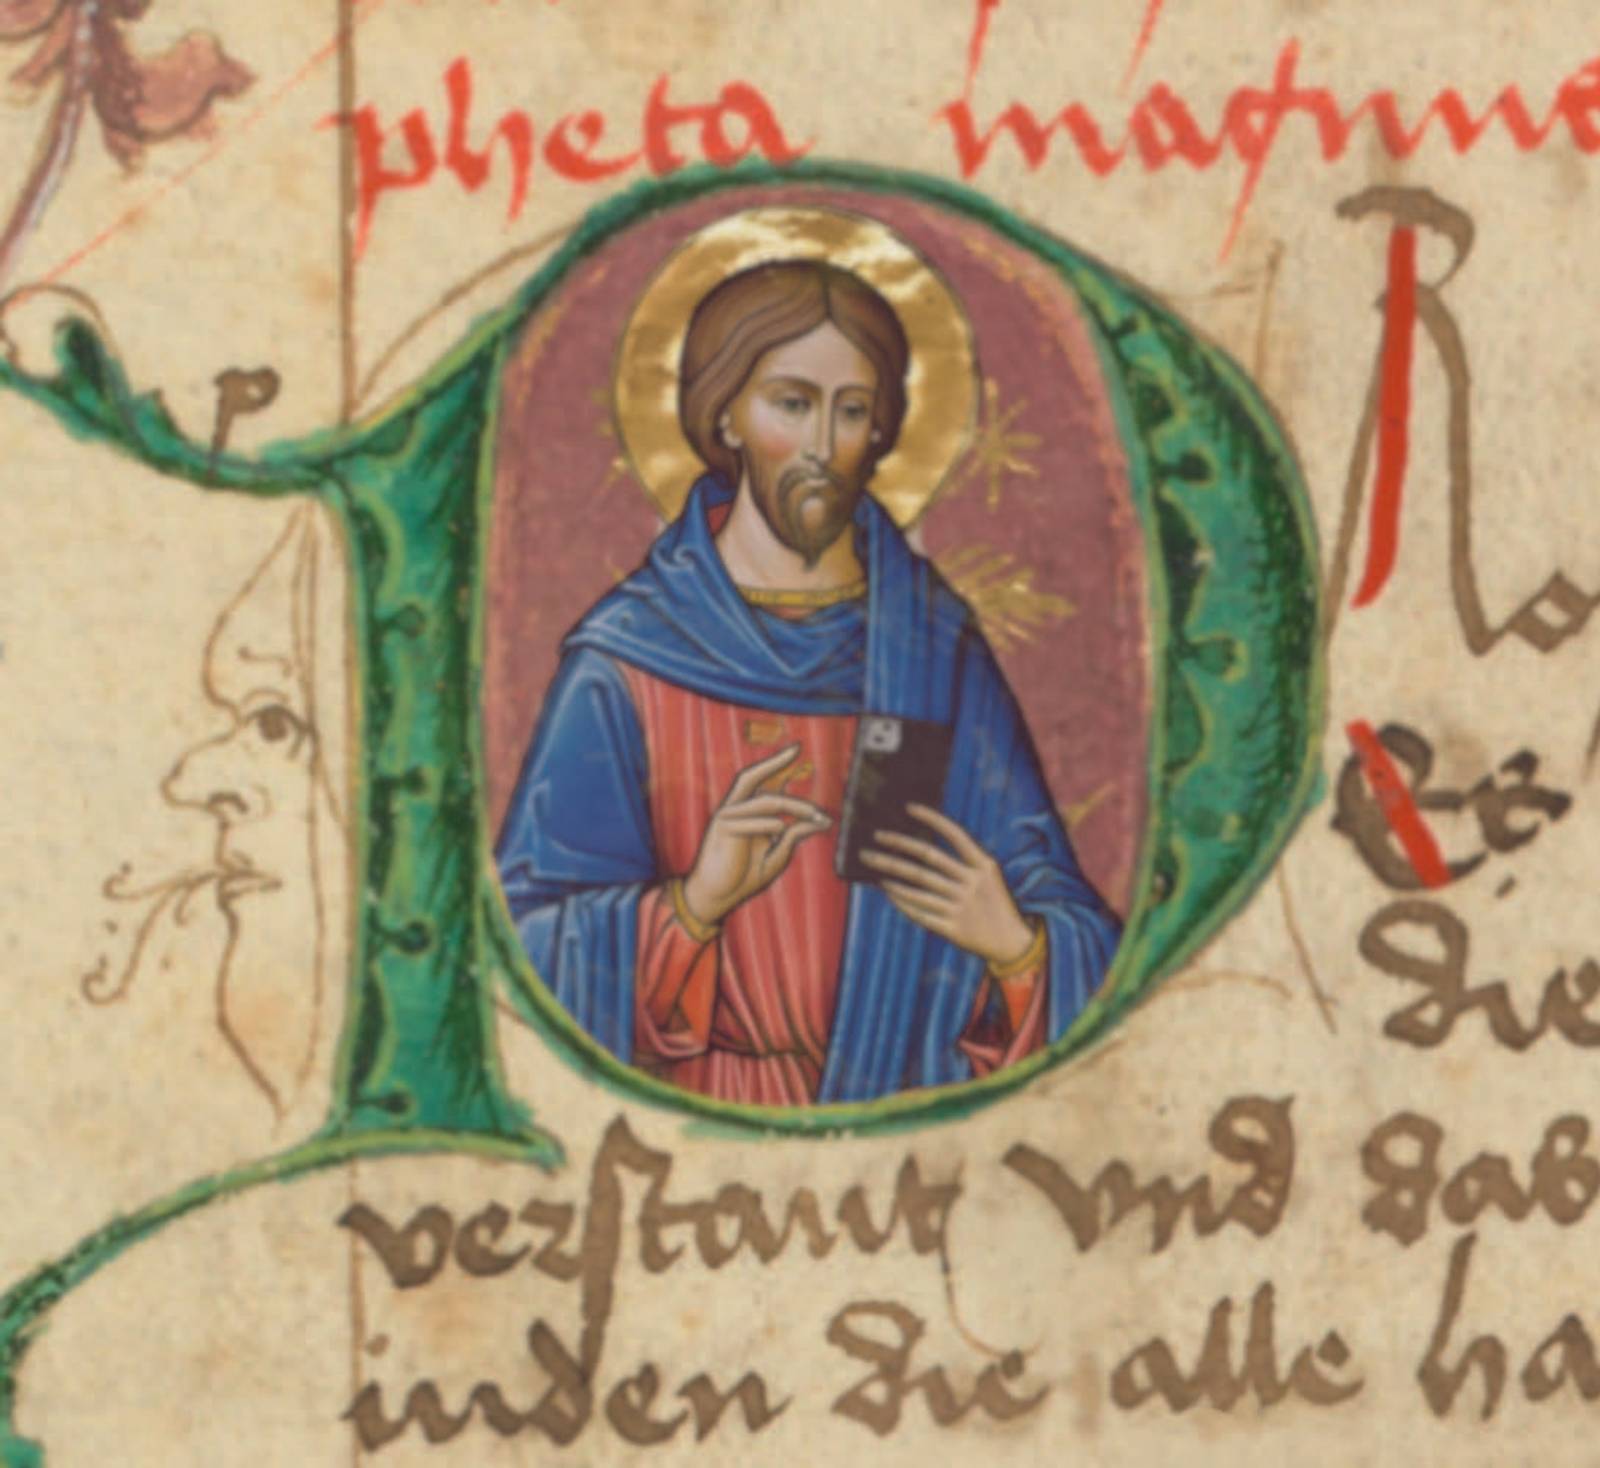 pheta magnus
p
P Ro
Er
die
verstant vnd das
inden die alle ha